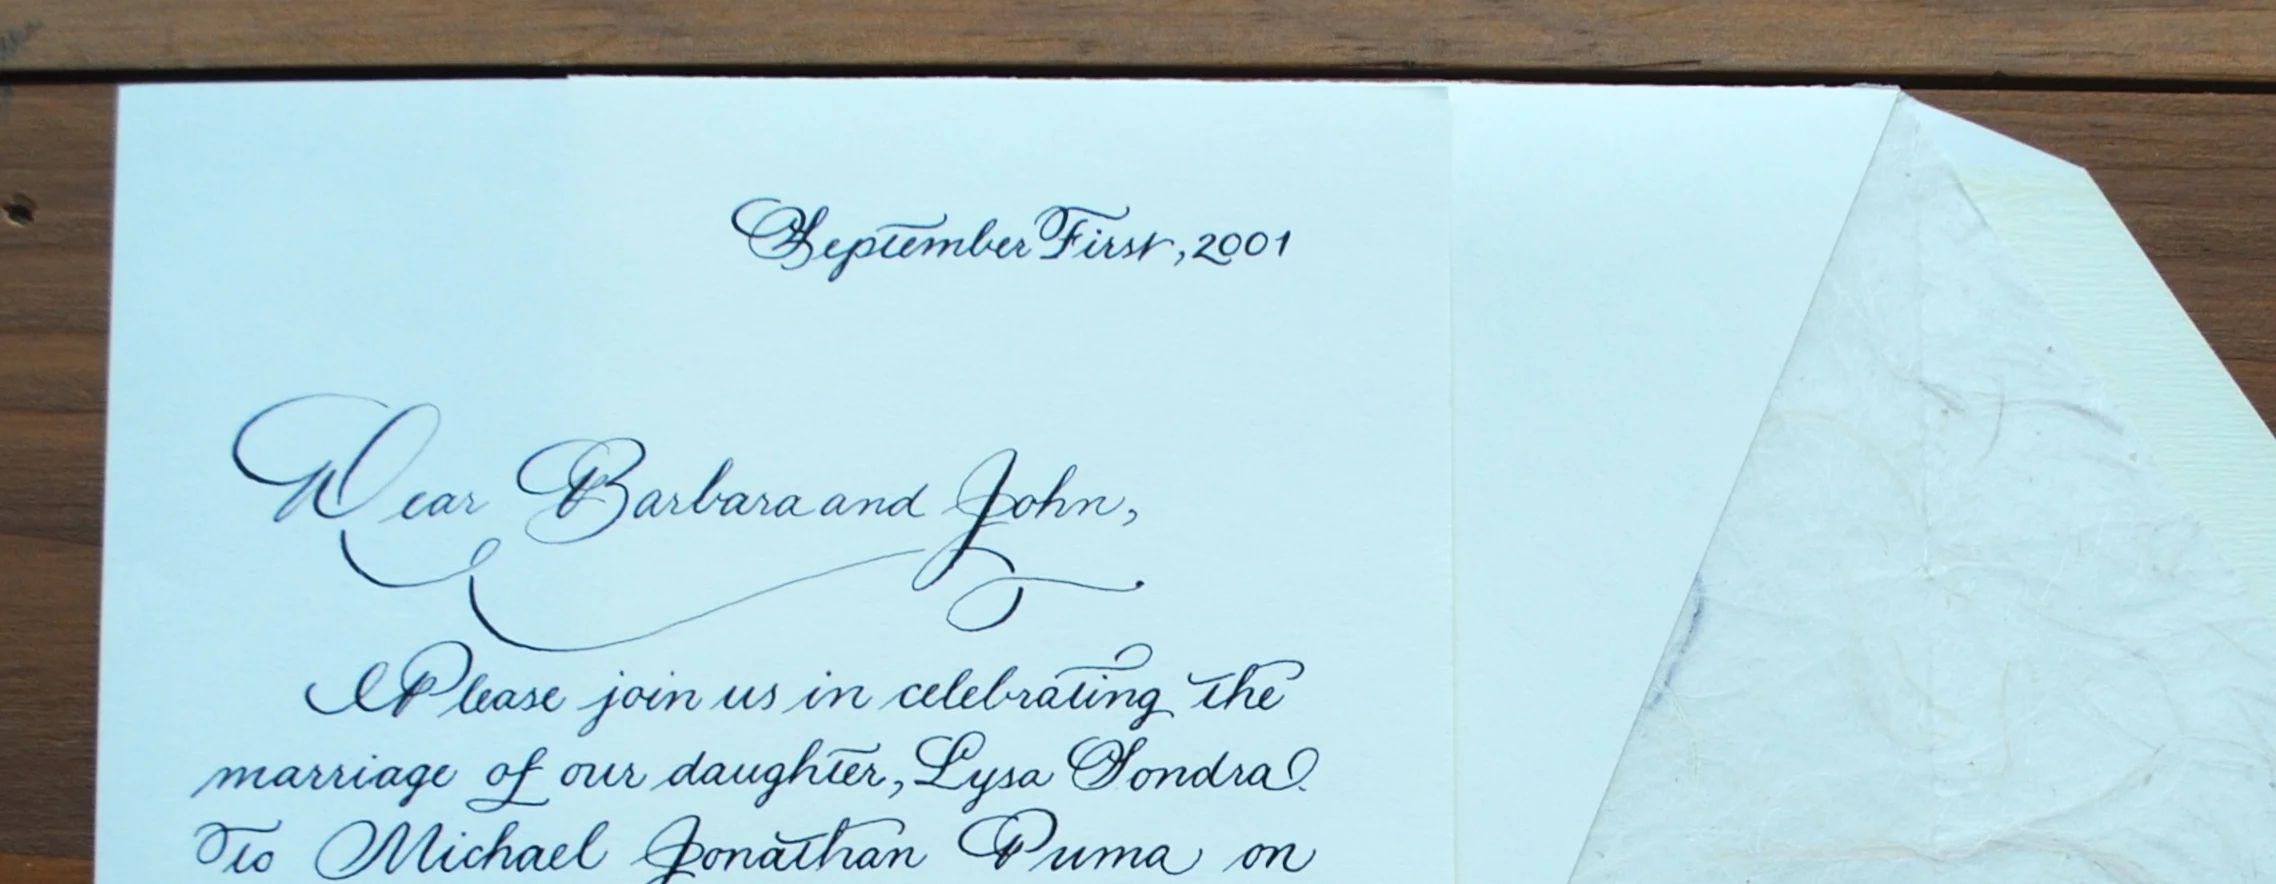 September First, 2001
Dear Barbara and John,
Please join us in celebrating the
marriage of our daughter, Lysa Sondra
To Michael Jonathan Puma on